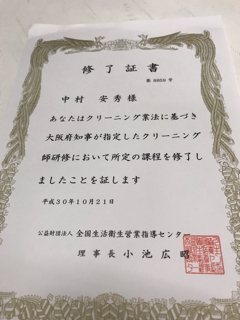 修了証書
第 8859 号
中村 安秀 様
あなたはクリーニング業法に基づき
大阪府知事が指定したクリーニング
師研修において所定の課程を修了し
ましたことを証します
平成30年10月21日
公益財団法人 全国生活衛生営業指導センター
理事長 小池広昭